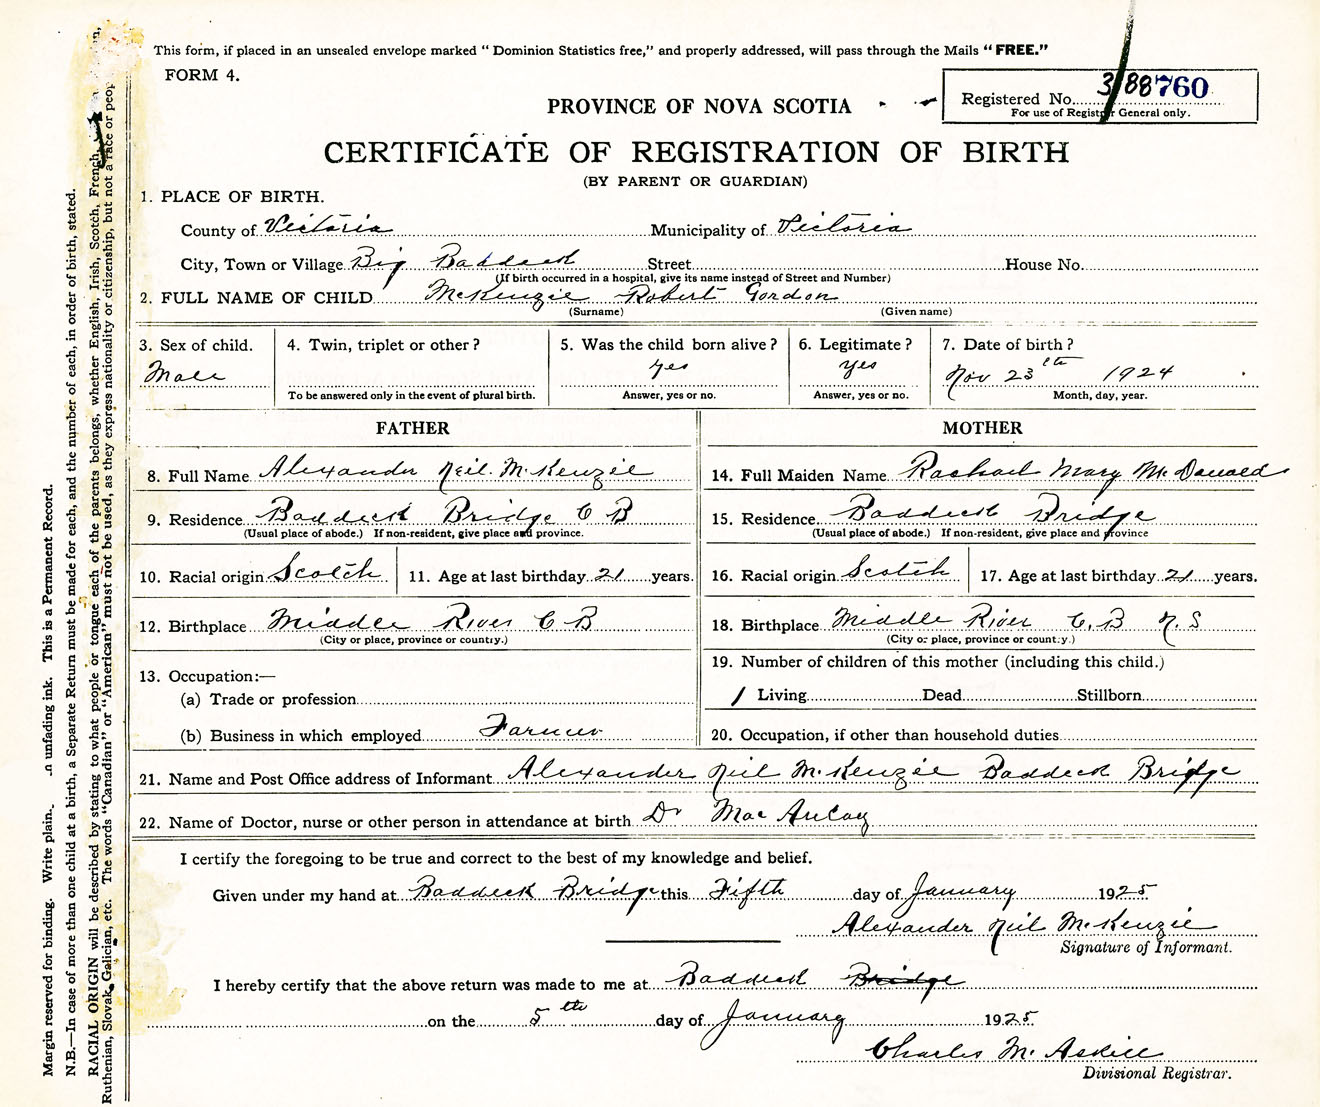 This form, if placed in an unsealed envelope marked “ Dominion Statistics free,” and properly addressed, will pass through the Mails “ FREE.”
FORM 4.
Registered No. 3/88760
For use of Registrar General only.
PROVINCE OF NOVA SCOTIA
CERTIFICATE OF REGISTRATION OF BIRTH
(BY PARENT OR GUARDIAN)
1. PLACE OF BIRTH.
County of Victoria Municipality of Victoria
City, Town or Village Big Baddeck Street House No.
(If birth occurred in a hospital, give its name instead of Street and Number)
2. FULL NAME OF CHILD McKenzie Robert Gordon
(Surname) (Given name)
3. Sex of child. 4. Twin, triplet or other ? 5. Was the child born alive ? 6. Legitimate ? 7. Date of birth ?
Male yes yes Nov 23th 1924
To be answered only in the event of plural birth. Answer, yes or no. Answer, yes or no. Month, day, year.
FATHER MOTHER
8. Full Name Alexander Neil McKenzie 14. Full Maiden Name Rachael Mary McDonald
9. Residence Baddeck Bridge C B 15. Residence Baddeck Bridge
(Usual place of abode.) If non-resident, give place and province. (Usual place of abode.) If non-resident, give place and province
10. Racial origin Scotch 11. Age at last birthday 21 years. 16. Racial origin Scotch 17. Age at last birthday 21 years.
12. Birthplace Middle River C B 18. Birthplace Middle River C.B N.S
(City or place, province or country.) (City or place, province or country.)
13. Occupation:— 19. Number of children of this mother (including this child.)
(a) Trade or profession 1 Living Dead Stillborn
(b) Business in which employed Farmer 20. Occupation, if other than household duties
21. Name and Post Office address of Informant Alexander Neil McKenzie Baddeck Bridge
22. Name of Doctor, nurse or other person in attendance at birth Dr MacAulay
I certify the foregoing to be true and correct to the best of my knowledge and belief.
Given under my hand at Baddeck Bridge this Fifth day of January 1925
Alexander Neil McKenzie
Signature of Informant.
I hereby certify that the above return was made to me at Baddeck Bridge
on the 5th day of January 1925
Charles McAskill
Divisional Registrar.
Margin reserved for binding. Write plain. unfading ink. This is a Permanent Record.
N.B.—In case of more than one child at a birth, a Separate Return must be made for each, and the number of each, in order of birth, stated.
RACIAL ORIGIN will be described by stating to what people or tongue each of the parents belongs, whether English, Irish, Scotch, French,
Ruthenian, Slovak, Galician, etc. The words “Canadian” or “American” must not be used, as they express nationality or citizenship, but not a race or peop